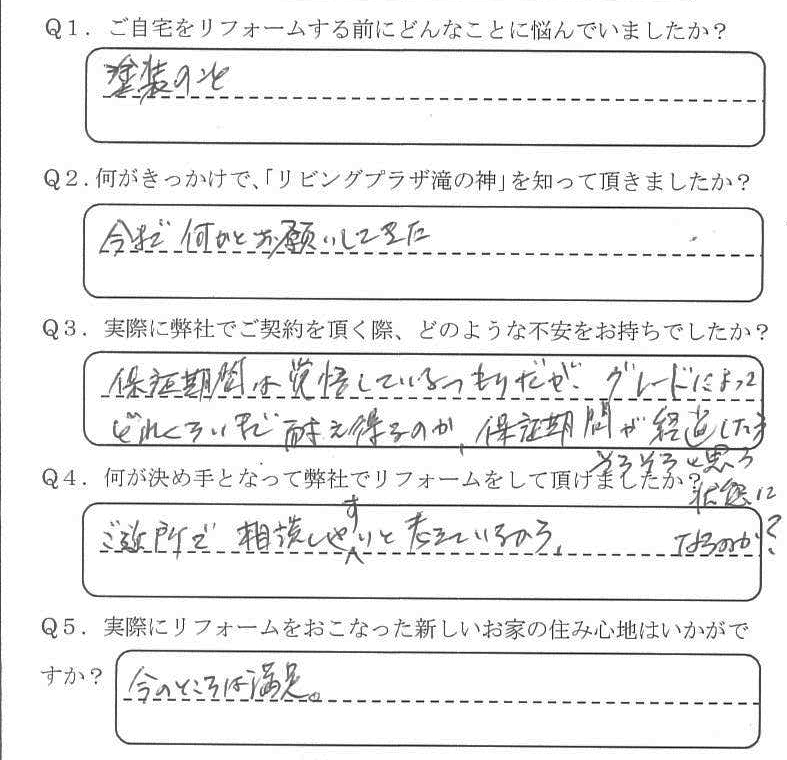 Q1．ご自宅をリフォームする前にどんなことに悩んでいましたか？
塗装のこと
Q2．何がきっかけで、「リビングプラザ滝の神」を知って頂きましたか？
今まで何かとお願いしてきた
Q3．実際に弊社でご契約を頂く際、どのような不安をお持ちでしたか？
保証期間は覚悟しているつもりだが、グレードによって
どれくらいまで耐え得るのか、保証期間が経過したら
そろそろと思う
Q4．何が決め手となって弊社でリフォームをして頂けましたか？
状態に
なるのか？
ご近所で相談しやすいと考えているから。
Q5．実際にリフォームをおこなった新しいお家の住み心地はいかがで
すか？
今のところは満足。